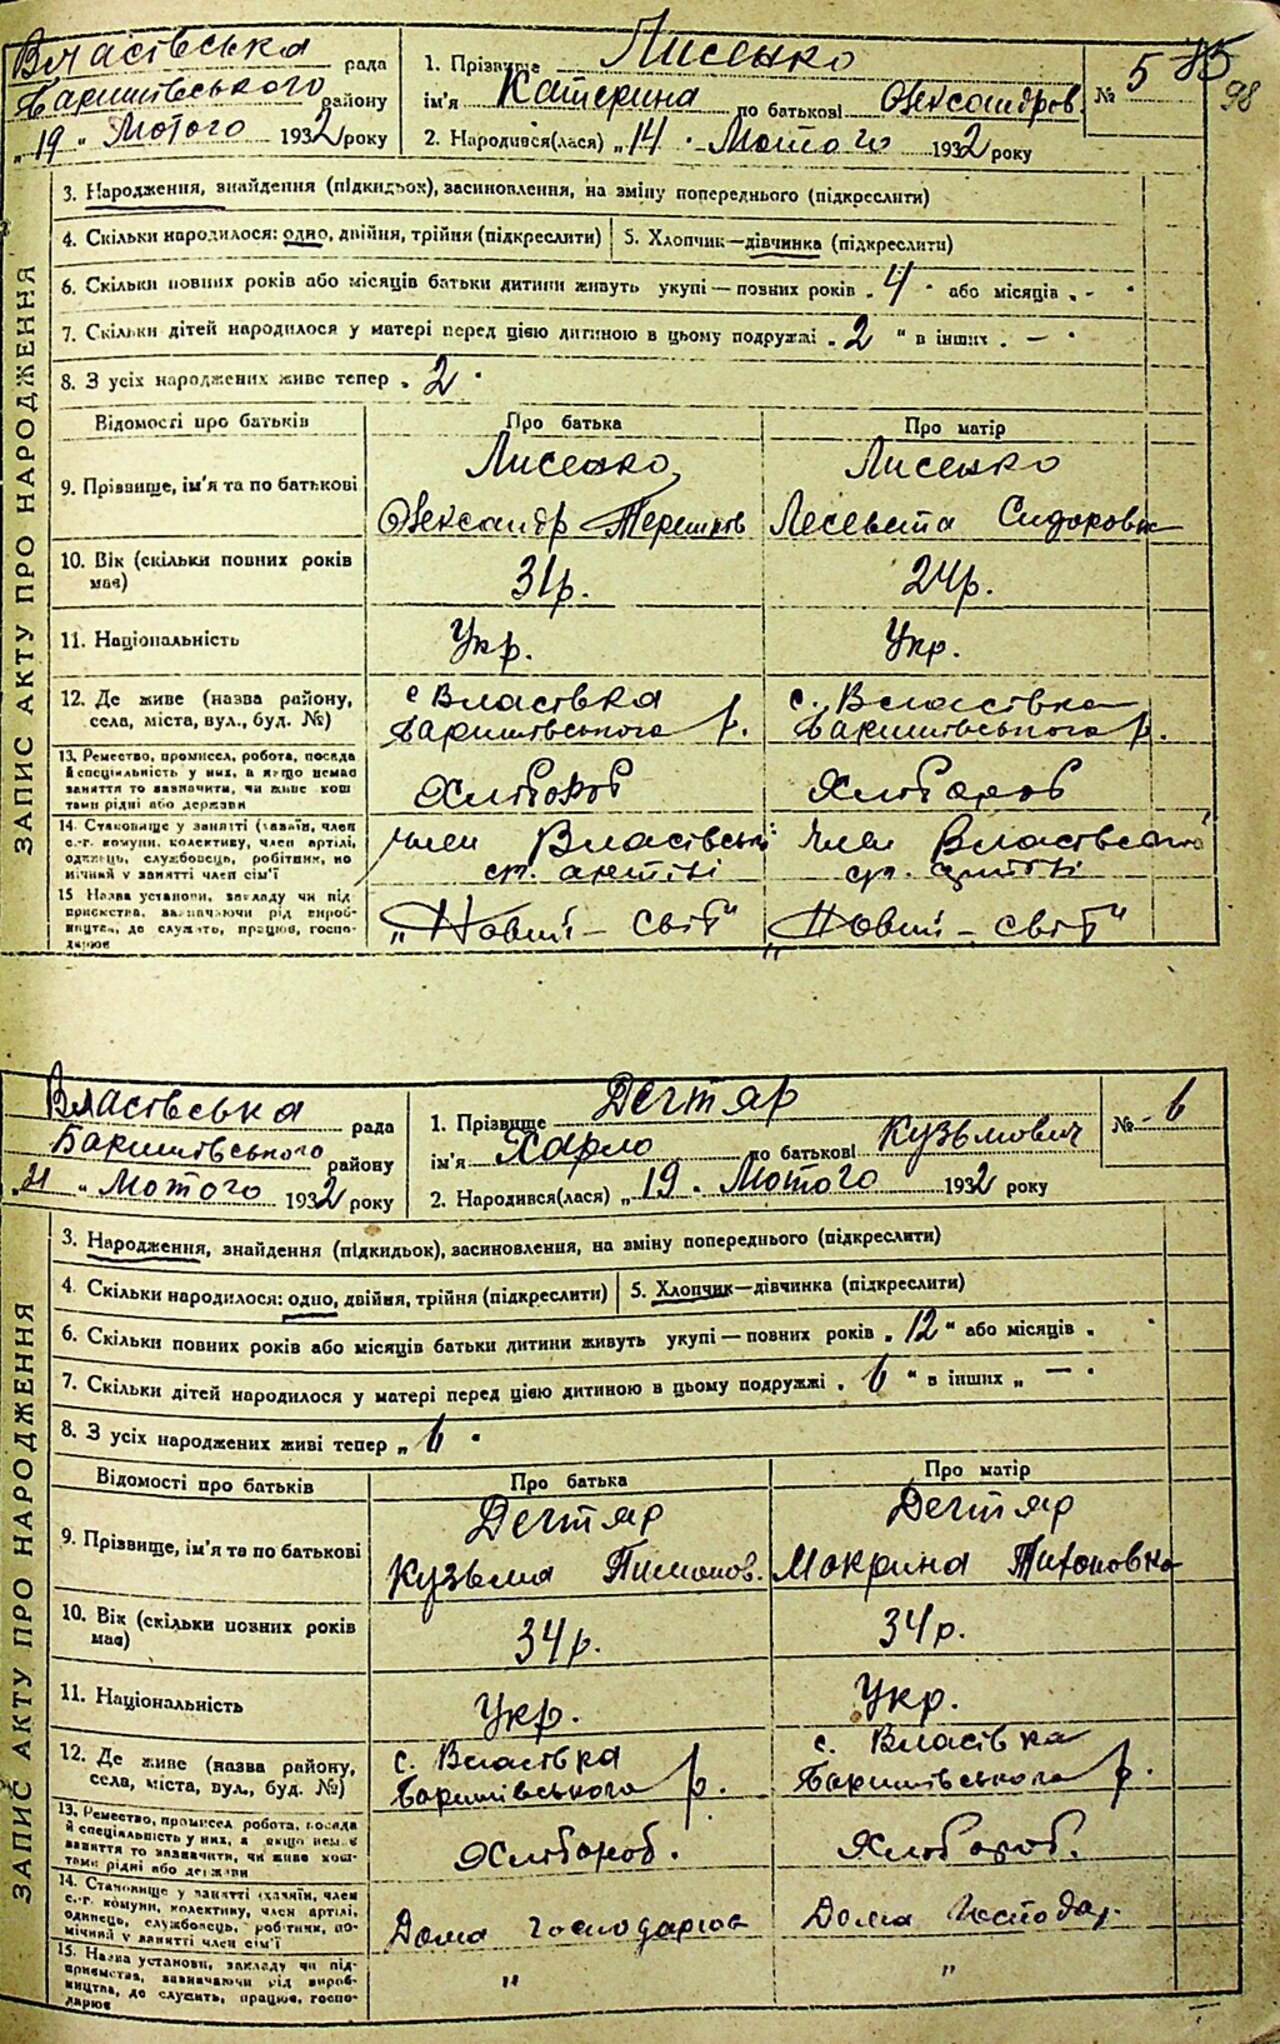 85
98
Власівська рада
Баришівського району
„19" Лютого 1932 року
1. Прізвище Лисенко
ім'я Катерина по батькові Олександров.
2. Народився(лася) „14 " Лютого 1932 року
№ 5
ЗАПИС АКТУ ПРО НАРОДЖЕННЯ
3. Народження, знайдення (підкидьок), засиновлення, на зміну попереднього (підкреслити)
4. Скільки народилося: одно, двійня, трійня (підкреслити)
5. Хлопчик—дівчинка (підкреслити)
6. Скільки повних років або місяців батьки дитини живуть укупі — повних років „4" або місяців „-"
7. Скільки дітей народилося у матері перед цією дитиною в цьому подружжі „2" в інших „—"
8. З усіх народжених живе тепер „2"
Відомості про батьків
Про батька
Про матір
9. Прізвище, ім'я та по батькові
Лисенко
Олександр Терешков
Лисенко
Лесевета Сидоровна
10. Вік (скільки повних років
має)
31р.
24р.
11. Національність
Укр.
Укр.
12. Де живе (назва району,
села, міста, вул., буд. №)
с Власівка
Баришівського р.
с. Власівка
Баришівського р.
13. Ремество, промисел, робота, посада
й спеціяльність у них, а якщо немає
заняття то зазначити, чи живе кош
тами рідні або держави
Хлібороб
Хлібороб
14. Становище у занятті (хазяїн, член
с.-г. комуни, колективу, член артілі,
одинець, службовець, робітник, по
мічний у занятті член сім'ї
член Власівської
сг. артілі
член Власівської
сг. артілі
15 Назва установи, закладу чи під
приємства, зазначаючи рід вироб-
ництва, де служить, працює, госпо-
дарює
„Новий – світ"
„Новий – світ"
Власівська рада
Баришівського району
„21 " Лютого 1932 року
1. Прізвище Дегтяр
ім'я Харло по батькові Кузьмович
2. Народився(лася) „19 " Лютого 1932 року
№ 6
ЗАПИС АКТУ ПРО НАРОДЖЕННЯ
3. Народження, знайдення (підкидьок), засиновлення, на зміну попереднього (підкреслити)
4. Скільки народилося: одно, двійня, трійня (підкреслити)
5. Хлопчик—дівчинка (підкреслити)
6. Скільки повних років або місяців батьки дитини живуть укупі — повних років „12" або місяців „ "
7. Скільки дітей народилося у матері перед цією дитиною в цьому подружжі „6 " в інших „ — "
8. З усіх народжених живі тепер „6 "
Відомості про батьків
Про батька
Про матір
9. Прізвище, ім'я та по батькові
Дегтяр
Кузьма Пимонов.
Дегтяр
Мокрина Тихоновна
10. Вік (скільки повних років
має)
34р.
34р.
11. Національність
Укр.
Укр.
12. Де живе (назва району,
села, міста, вул., буд. №)
с. Власівка
Баришівського р.
с. Власівка
Баришівського р.
13. Ремество, промисел робота, посада
й спеціяльність у них, а якщо немає
заняття то зазначити, чи живе кош-
тами рідні або держави
Хлібороб.
Хлібороб.
14. Становище у занятті (хазяїн, член
с.-г. комуни, колективу, член артілі,
одинець, службовець, робітник, по-
мічний у занятті член сім'ї
Дома господарює
Дома господар.
15. Назва установи, закладу чи під-
приємства, зазначаючи рід вироб-
ництва, де служить, працює, госпо-
дарює
"
"